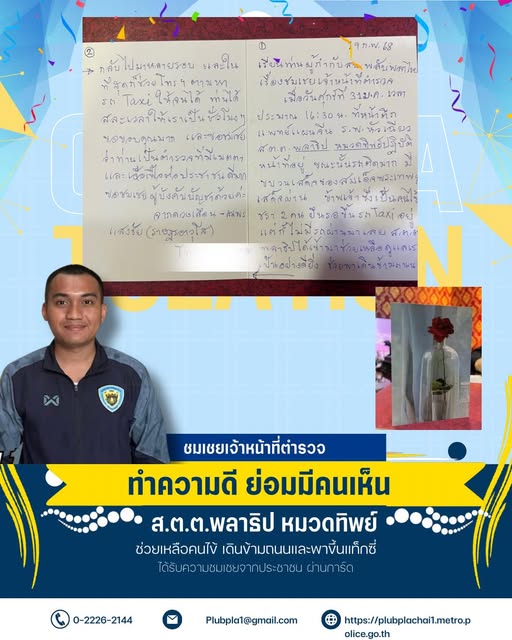 ②
กลับไปมาหลายรอบ และใน
ที่สุดก็ช่วยโทรฯ ตามหา
รถ Taxi ให้จนได้ ท่านได้
สละเวลาให้เราเป็นชั่วโมงๆ
ขอขอบคุณมาก
จำท่านเป็นตำรวจที่มีเมตตา
และเอื้อเฟื้อต่อประชาชนดีมาก
ขอชมเชยผู้บังคับบัญชาด้วยค่ะ
แสงชัย (ราษฎรอาวุโส)
①
19 ก.พ. 68
เรียนท่านผู้กำกับสน.พลับพลาไชย
เรื่องชมเชยเจ้าหน้าที่ตำรวจ
เมื่อวันศุกร์ที่ 31 ม.ค. เวลา
ประมาณ 14:30 น. ที่หน้าตึก
แพทย์แผนจีน ร.พ. หัวเฉียว
ส.ต.ต. พลาธิป หมวดทิพย์ ปฏิบัติ
หน้าที่อยู่ ขณะนั้นรถติดมาก มี
ขบวนเสด็จของสมเด็จพระเทพฯ
เสด็จผ่าน ข้าพเจ้าซึ่งเป็นคนไข้
ชรา 2 คน ยืนรอขึ้นรถ Taxi อยู่
แต่ก็ไม่มีรถผ่านมาเลย ส.ต.ต.
พลาธิปได้เข้ามาช่วยเหลือดูแลเรา
เป็นอย่างดียิ่ง ช่วยพาเดินข้ามถนน
ชมเชยเจ้าหน้าที่ตำรวจ
ทำความดี ย่อมมีคนเห็น
ส.ต.ต.พลาธิป หมวดทิพย์
ช่วยเหลือคนไข้ เดินข้ามถนนและพาขึ้นแท็กซี่
ได้รับความชมเชยจากประชาชน ผ่านการ์ด
0-2226-2144
Plubpla1@gmail.com
https://plubplachai1.metro.p
olice.go.th